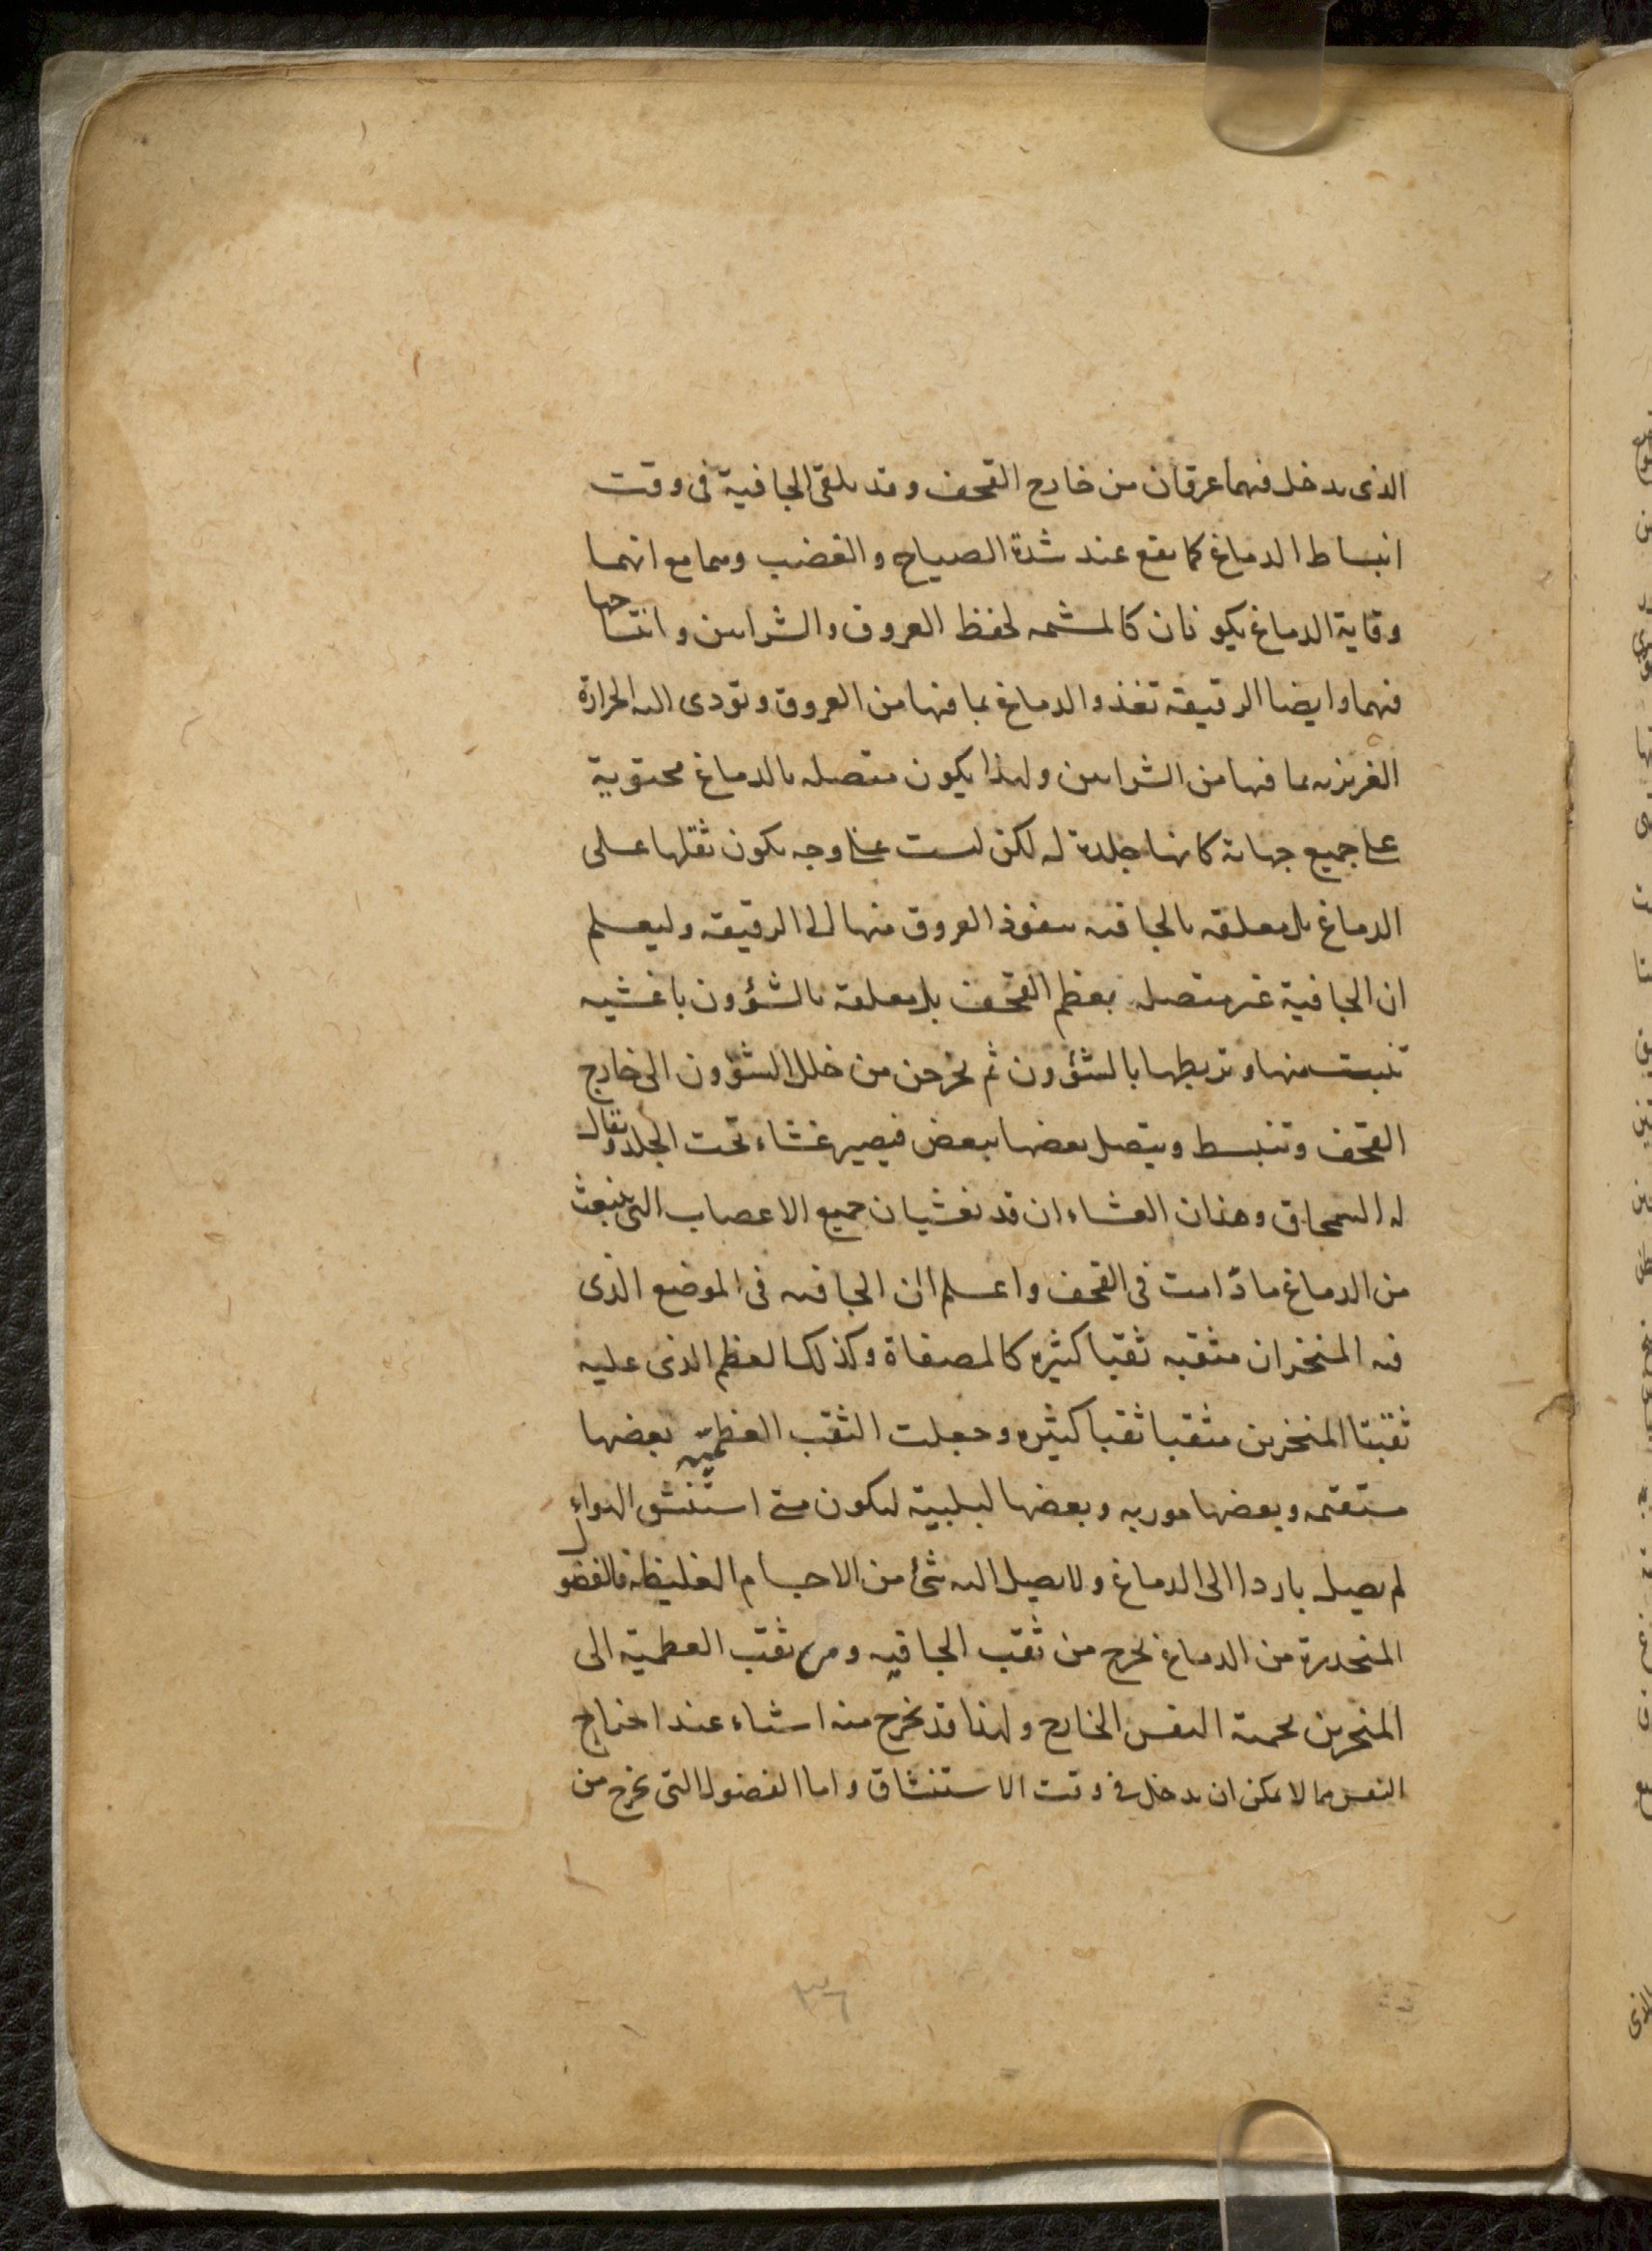 الذى يدخل فيهما عرقان من خارج القحف وقد يلقى الجافية فى وقت
انبساط الدماغ كما يقع عند شدة الصياح والغضب وهما مع انهما
وقاية الدماغ يكونان كالمشيمه لحفظ العروق والشرايين وانتساجها
فيهما وايضا الرقيقة تغذو الدماغ بما فيها من العروق وتودى اليه الحرارة
الغريزيه بما فيها من الشرايين ولهذا يكون متصله بالدماغ محتوية
على جميع جهاته كانها جلدة له لكن ليست على وجه يكون ثقلها على
الدماغ بل معلقه بالجافيه بنفوذ العروق منها الى الرقيقه وليعلم
ان الجافية غير متصله بعظم القحف بل معلقة بالشؤون باغشيه
تنبت منها وتربطها بالشؤون ثم يخرجن من خلل الشؤون الى خارج
القحف وتنبسط ويتصل بعضها ببعض فيصير غشاء تحت الجلد ويقال
له السمحاق وهذان الغشاءان قد يغشيان جميع الاعصاب التى ينبعث
من الدماغ ما دامت فى القحف واعلم ان الجافيه فى الموضع الذى
فيه المنخران مثقبه ثقبا كثيره كالمصفاة وكذلك العظم الذى عليه
ثقبتا المنخرين مثقبا ثقبا كثيره وجعلت الثقب العظميّه بعضها
مستقيمه وبعضها موربه وبعضها لبلبية ليكون متى استنشق الهواء
لم يصل باردا الى الدماغ ولا يصل اليه شئ من الاجسام الغليظه فالفضول
المنحدرة من الدماغ يخرج من ثقب الجافيه ومن ثقب العظمية الى
المنخرين بحمية النفس الخارج ولهذا قد يخرج منه اشياء عند اخراج
النفس مما لا يمكن ان يدخل فى وقت الاستنشاق واما الفضول التى يخرج من
٣٦